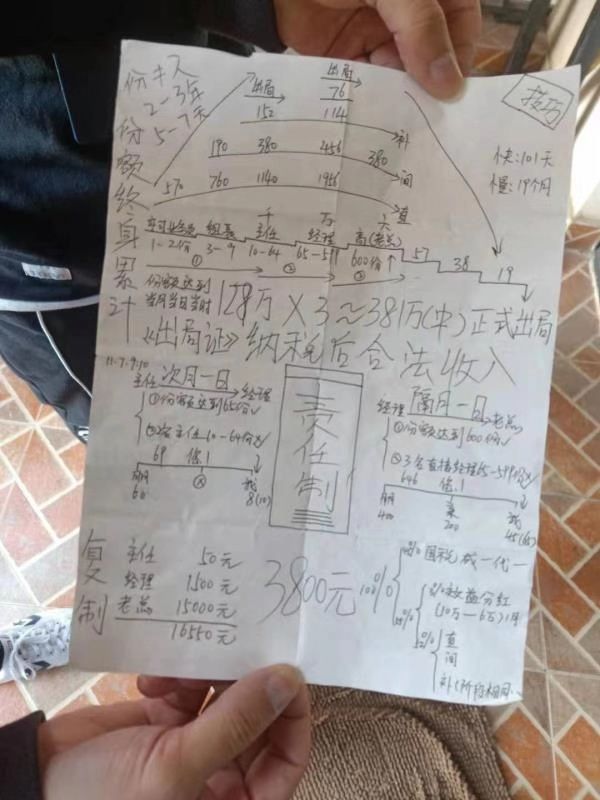 出局
出局
76
152
114
技巧
份
2-3年
5-7天
快:101天
慢:19个月
补
190
380
2456
380
间
570
760
1140
1956
直
份额终身累计
组长
千
主任
万
经理
六
高(老总)
1-2份
3-9
10-64
65-599
600份
57
38
19
①
②
③
份额达到
当月当日当时
128万×3≈381万(中)正式出局
《出局证》纳税后合法收入
11.7.9.10
主任 次月一日 经理
①份额达到65份
10-64份
69
借1
朋
60
我
8(10)
责任制
经理 隔月一日 老总
①份额达到600份
②3名直接经理65-599份
646
借1
朋
400
某
200
我
45(65)
复制
主任 50元
经理 1500元
老总 15000元
16550元
3800元
100%
国税 城一代一
效益分红
(10万-6万)1月
直
间
补(阶段相同